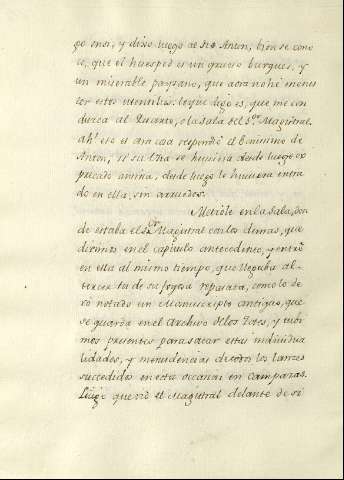 go ensi, y dixo luego al tio Anton, bien se cono
ce, que el huesped es un grueso burgues, y
un miserable paysano, que aora no hè menes
ter estos utensilios: lo que digo es, que me con
duzca al Quarto, o la Sala del Sor. Magistral.
ah! eso es otra cosa respondiò el bonisimo de
Anton, si su Usia se huviera desde luego ex
plicado ansina, desde luego le huviera entra
do en ella, sin arruedos.
Metiole en la Sala, don
de estaba el Sr. Magistral con los demas, que
dexamos en el capitulo antecedente, y entrò
en ella al mismo tiempo, que llegaba al
tercer de su fogosa reparata, como lo de
xò notado un Manuscripto antiguo, que
se guarda en el Archivo de los Zotes, y tubi
mos presente para sacar estas individua
lidades, y menudencias de todos los lances
succedidos en esta occasion en Campazas.
Luego que viò el Magistral delante de si